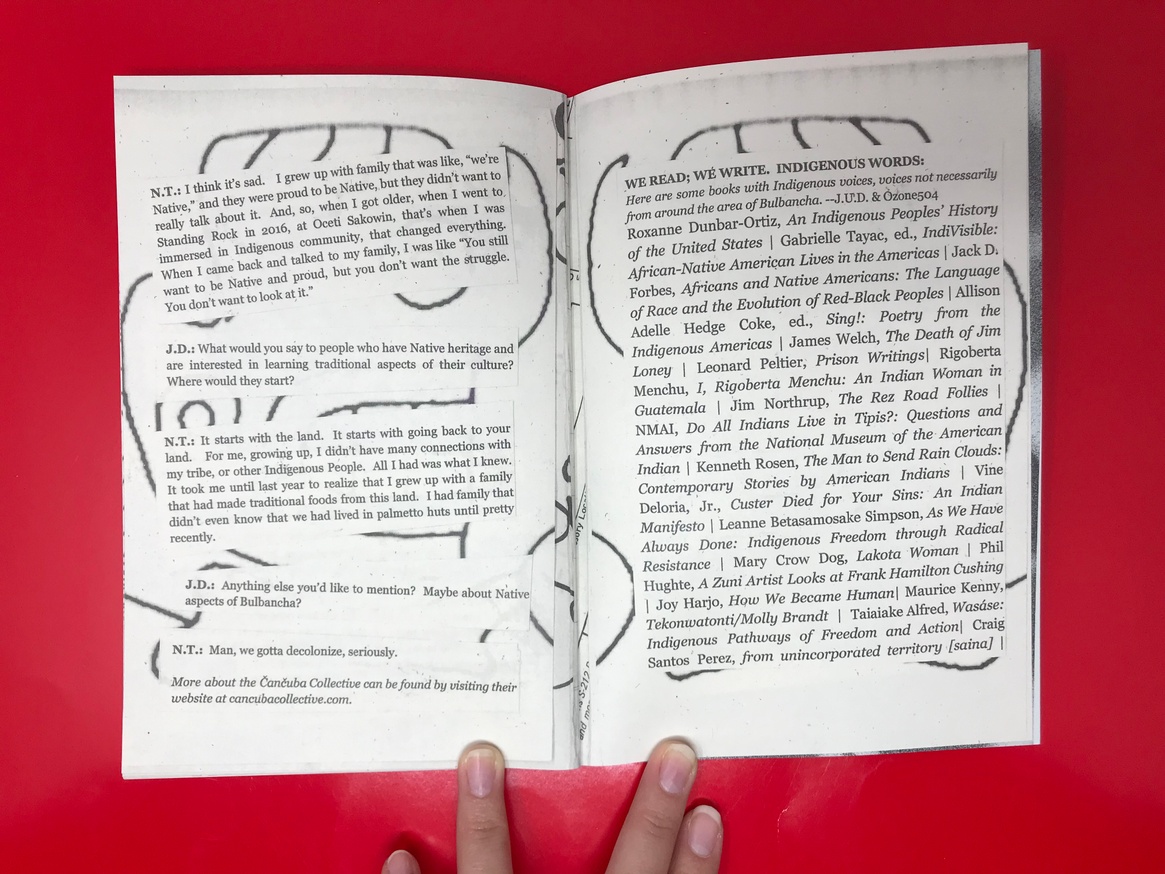 N.T.: I think it's sad. I grew up with family that was like, “we're
Native,” and they were proud to be Native, but they didn't want to
really talk about it. And, so, when I got older, when I went to
Standing Rock in 2016, at Oceti Sakowin, that's when I was
immersed in Indigenous community, that changed everything.
When I came back and talked to my family, I was like “You still
want to be Native and proud, but you don't want the struggle.
You don't want to look at it.”
J.D.: What would you say to people who have Native heritage and
are interested in learning traditional aspects of their culture?
Where would they start?
N.T.: It starts with the land. It starts with going back to your
land. For me, growing up, I didn't have many connections with
my tribe, or other Indigenous People. All I had was what I knew.
It took me until last year to realize that I grew up with a family
that had made traditional foods from this land. I had family that
didn't even know that we had lived in palmetto huts until pretty
recently.
J.D.: Anything else you'd like to mention? Maybe about Native
aspects of Bulbancha?
N.T.: Man, we gotta decolonize, seriously.
More about the Čančuba Collective can be found by visiting their
website at cancubacollective.com.
WE READ; WE WRITE. INDIGENOUS WORDS:
Here are some books with Indigenous voices, voices not necessarily
from around the area of Bulbancha. --J.U.D. & Ozone504
Roxanne Dunbar-Ortiz, An Indigenous Peoples' History
of the United States | Gabrielle Tayac, ed., IndiVisible:
African-Native American Lives in the Americas | Jack D.
Forbes, Africans and Native Americans: The Language
of Race and the Evolution of Red-Black Peoples | Allison
Adelle Hedge Coke, ed., Sing!: Poetry from the
Indigenous Americas | James Welch, The Death of Jim
Loney | Leonard Peltier, Prison Writings| Rigoberta
Menchu, I, Rigoberta Menchu: An Indian Woman in
Guatemala | Jim Northrup, The Rez Road Follies |
NMAI, Do All Indians Live in Tipis?: Questions and
Answers from the National Museum of the American
Indian | Kenneth Rosen, The Man to Send Rain Clouds:
Contemporary Stories by American Indians | Vine
Deloria, Jr., Custer Died for Your Sins: An Indian
Manifesto | Leanne Betasamosake Simpson, As We Have
Always Done: Indigenous Freedom through Radical
Resistance | Mary Crow Dog, Lakota Woman | Phil
Hughte, A Zuni Artist Looks at Frank Hamilton Cushing
| Joy Harjo, How We Became Human| Maurice Kenny,
Tekonwatonti/Molly Brandt | Taiaiake Alfred, Wasáse:
Indigenous Pathways of Freedom and Action| Craig
Santos Perez, from unincorporated territory [saina] |